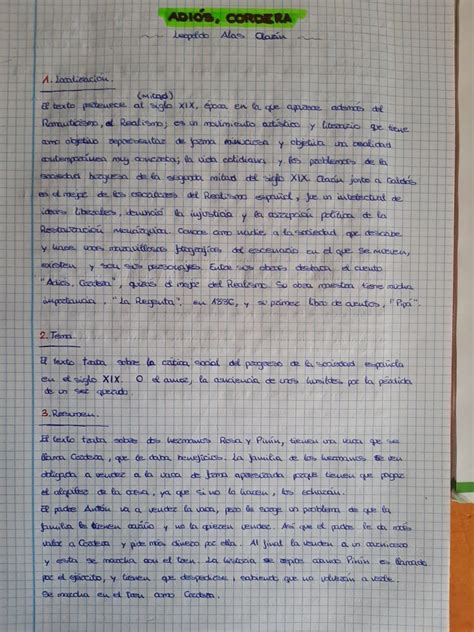 ADIÓS, CORDERA
Leopoldo Alas Clarín
1. Localización.
(mitad)
El texto pertenece al siglo XIX, época en la que aparece además del
Romanticismo, el Realismo; es un movimiento artístico y literario que tiene
como objetivo representar de forma minuciosa y objetiva una realidad
contemporánea muy concreta; la vida cotidiana y los problemas de la
sociedad burguesa de la segunda mitad del siglo XIX. Clarín junto a Galdós
es el mejor de los escritores del Realismo español, fue un intelectual de
ideas liberales, denunció la injusticia y la corrupción política de la
Restauración Monárquica. Conoce como nadie a la sociedad que describe
y hace unas maravillosas fotografías del escenario en el que se mueven,
existen y son sus personajes. Entre sus obras destaca el cuento
"Adiós, Cordera", quizás el mejor del Realismo. Su obra maestra tiene mucha
importancia, "La Regenta", en 1886, y su primer libro de cuentos, "Pipá".
2. Tema.
El texto trata sobre la crítica social del progreso de la sociedad española
en el siglo XIX. O el amor, la de unos humildes por la pérdida
de un ser querido.
3. Resumen.
El texto trata sobre dos hermanos Rosa y Pinín, tienen una vaca que se
llama Cordera, que le da beneficios. La familia de los hermanos se ven
obligada a vender a la vaca de forma porque tienen que pagar
el alquiler de la casa, ya que si no lo hacen, los echarían.
El padre Antón va a vender la vaca, pero le surge un problema de que la
familia le tienen cariño y no la quieren vender. Así que el padre le da más
valor a Cordera y pide más dinero por ella. Al final la venden a un carnicero
y esta se marcha en el tren. La historia se repite cuando Pinín es llamado
por el ejército, y tienen que despedirse, sabiendo que no volverán a verle.
Se marcha en el tren como Cordera.